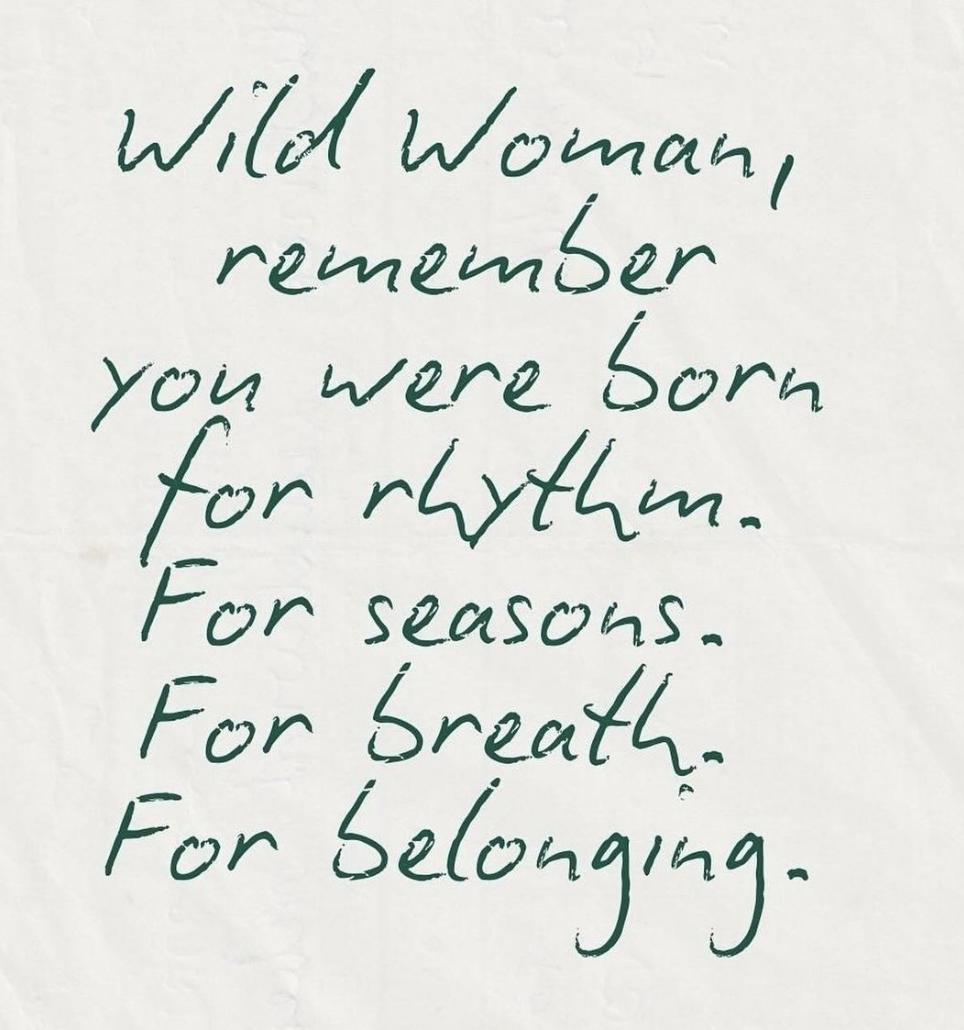 Wild Woman,
remember
you were born
for rhythm.
For seasons.
For breath.
For belonging.